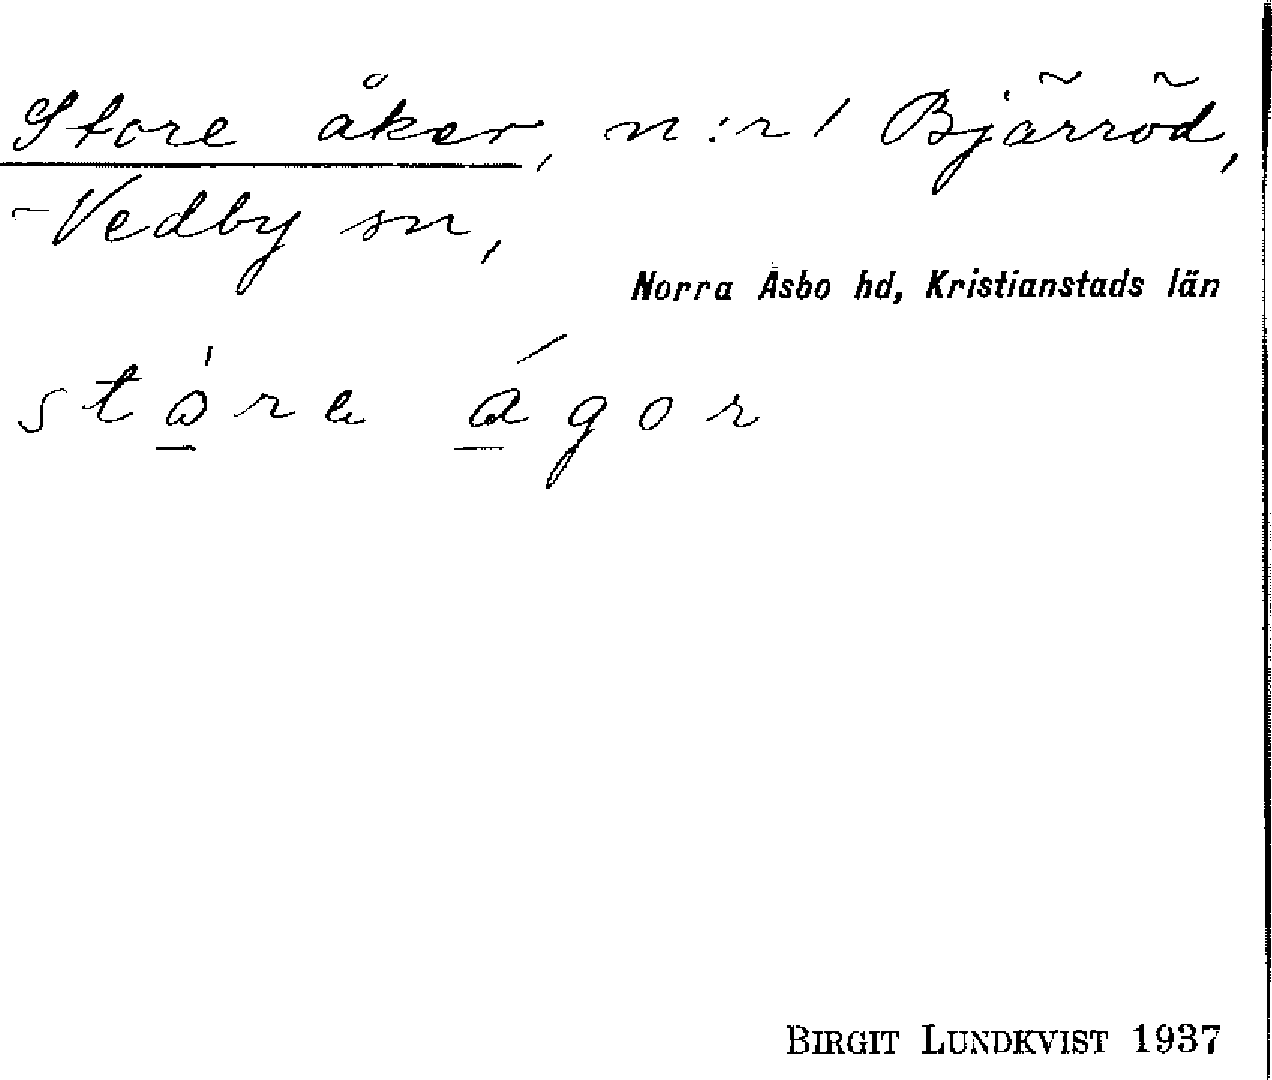 Store åker, n:r 1 Bjärröd,
Vedby sn,
Norra Åsbo hd, Kristianstads län
stòre ágor
BIRGIT LUNDKVIST 1937